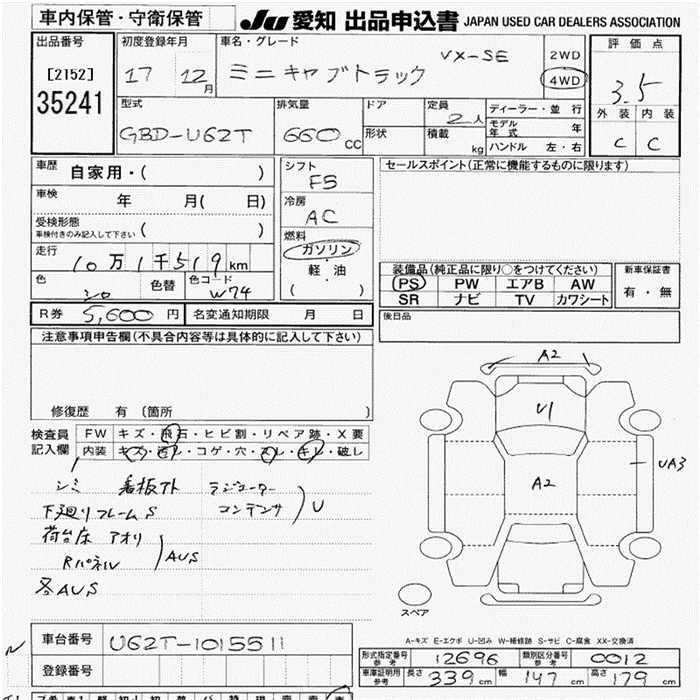 車内保管・守衛保管
JU 愛知 出品申込書 JAPAN USED CAR DEALERS ASSOCIATION
出品番号
[2152]
35241
初度登録年月
17 12月
車名・グレード
ミニキャブトラック VX-SE
2WD
4WD
評価点
3.5
外装 内装
C C
型式
GBD-U62T
排気量
660 CC
ドア
形状
定員
2人
積載 kg
ディーラー・並行
モデル年式 年
ハンドル 左・右
車歴 自家用・( )
車検 年 月( 日)
受検形態
車検付きのみ記入して下さい ( )
走行 10万1千519km
色 シロ 色替 色コード W74
シフト
F5
冷房
AC
燃料
ガソリン
・
軽・油
( )
セールスポイント(正常に機能するものに限ります)
装備品(純正品に限り○をつけてください)
PS PW エアB AW
SR ナビ TV カワシート
新車保証書
有・無
R券 5,600円 名変通知期限 月 日
後日品
注意事項申告欄(不具合内容等は具体的に記入して下さい)
修復歴 有 〔箇所 〕
検査員
記入欄
FW キズ・飛石・ヒビ割・リペア跡・X要
内装 キズ・汚レ・コゲ・穴・スレ・キレ・破レ
シミ 看板アト ラジエーター
コンデンサ )U
下廻リフレームS
荷台床 アオリ
Rパネル )AUS
各AUS
A2
U1
A2
UA3
スペア
A-キズ E-エクボ U-凹み W-補修跡 S-サビ C-腐食 XX-交換済
車台番号 U62T-1015511
登録番号
形式指定番号
参考 12696
類別区分番号
参考 0012
車庫証明用
参考 長さ 339cm 幅 147cm 高さ 179cm